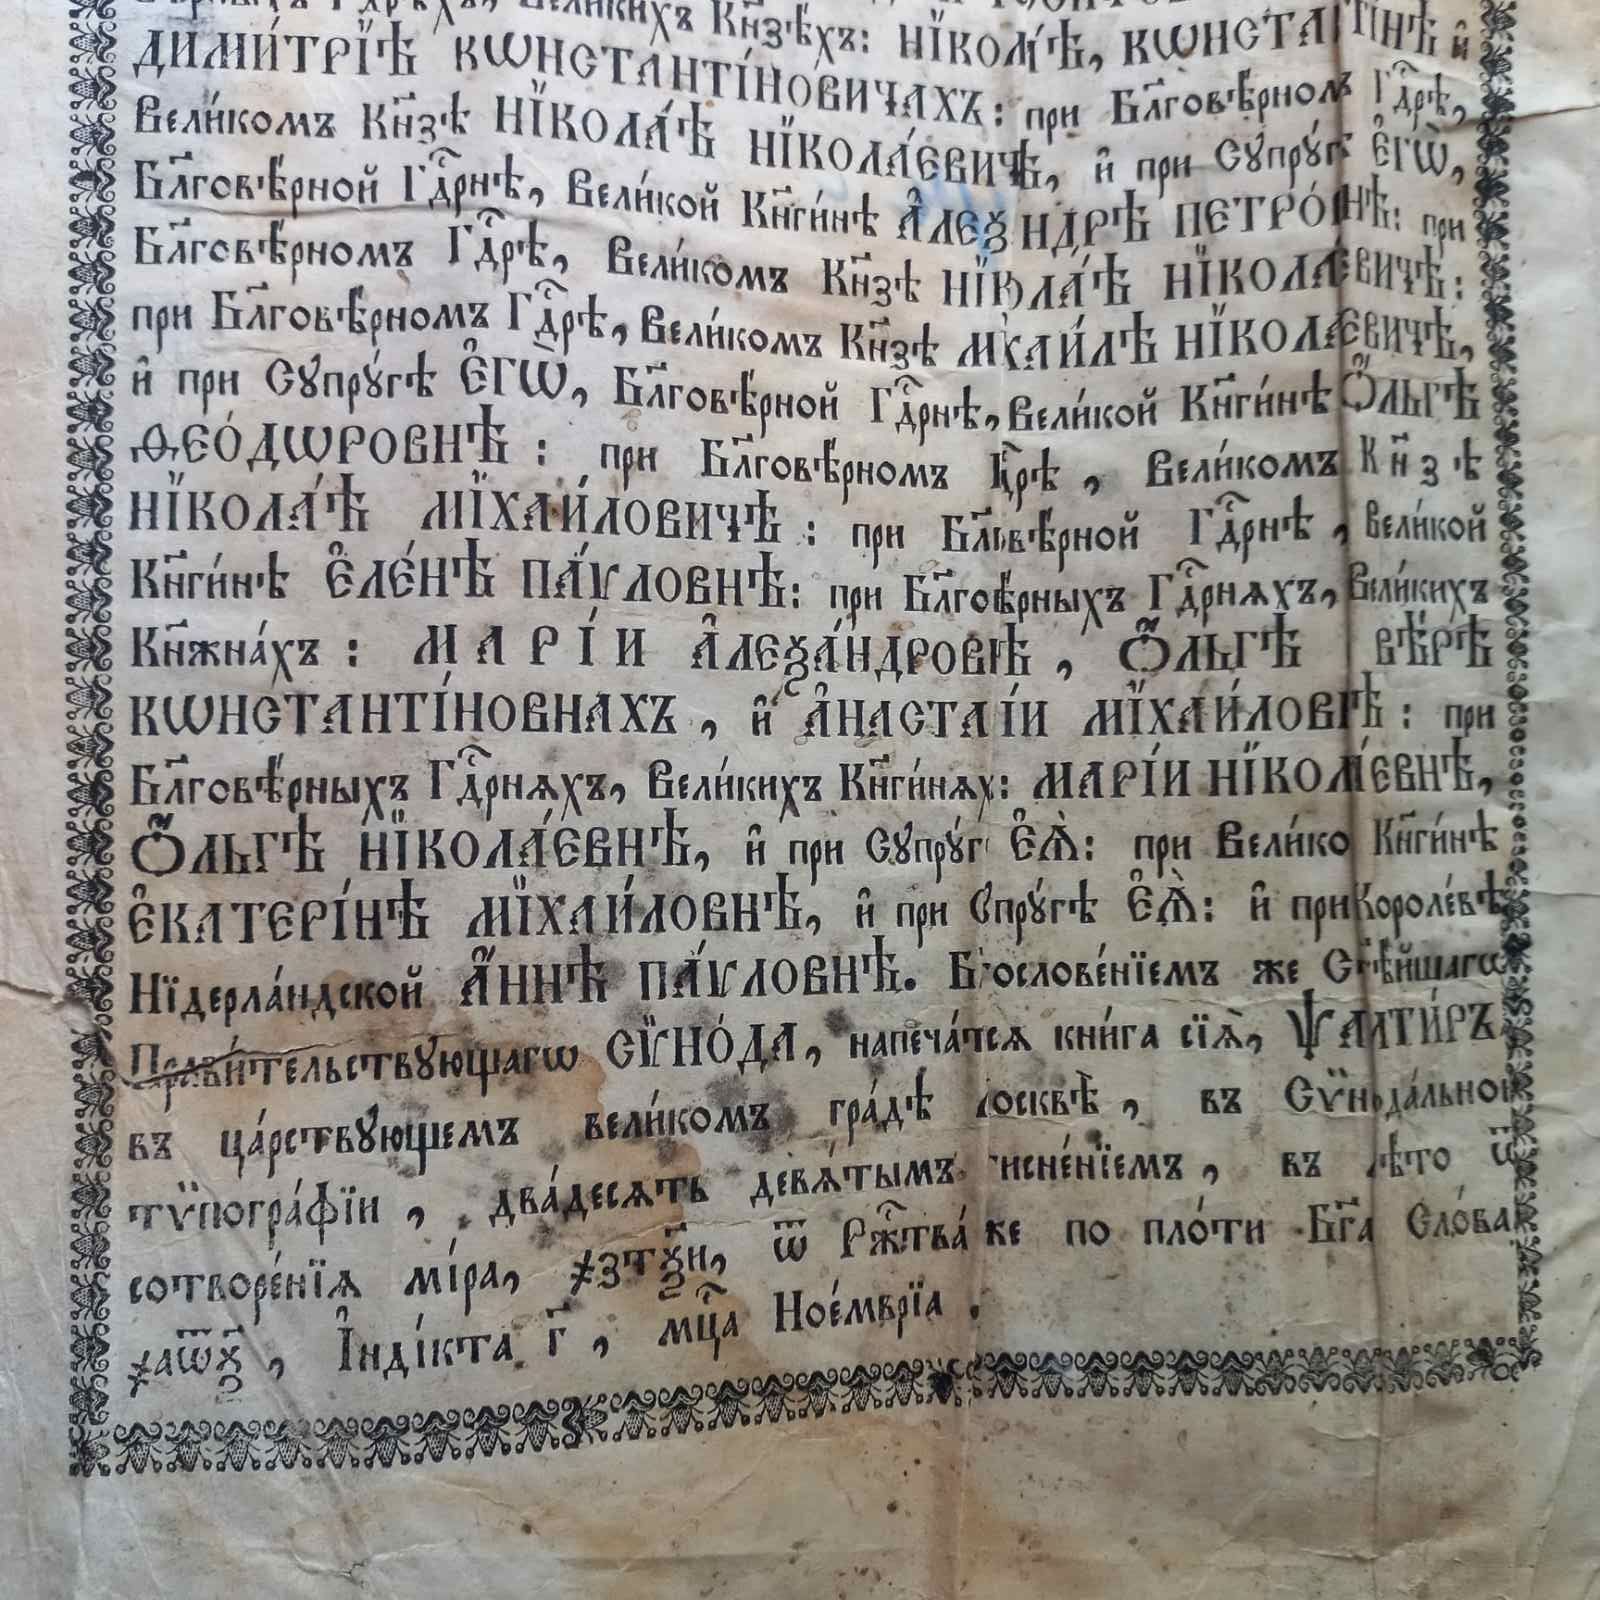 Великихъ Кн҃зѣхъ: НЇКОЛА́Ѣ, КѠНСТАНТІ́НѢ и҆
ДИМИ́ТРЇѢ КѠНСТАНТІ́НОВИЧАХЪ: при Бл҃говѣ́рномъ Гдⷭ҇рѣ,
Вели́комъ Кн҃зѣ НЇКОЛА́Ѣ НЇКОЛА́ЕВИЧѢ, и҆ при Сꙋпрꙋ́гѣ Є҆ГѠ̀,
Бл҃говѣ́рной Гдⷭ҇рнѣ, Вели́кой Кн҃ги́нѣ А҆ЛЕѮНДРѢ ПЕТРО́ВНѢ: при
Бл҃говѣ́рномъ Гдⷭ҇рѣ, Вели́комъ Кн҃зѣ НЇКОЛА́Ѣ НЇКОЛА́ЕВИЧѢ:
при Бл҃говѣ́рномъ Гдⷭ҇рѣ, Вели́комъ Кн҃зѣ МЇХАИ́ЛѢ НЇКОЛА́ЕВИЧѢ,
и҆ при Сꙋпрꙋ́гѣ Є҆ГѠ̀, Бл҃говѣ́рной Гдⷭ҇рнѣ, Вели́кой Кн҃ги́нѣ Ѻ҆́ЛЬГѢ
ѲЕО́ДѠРОВНѢ: при Бл҃говѣ́рномъ Гдⷭ҇рѣ, Вели́комъ Кн҃зѣ
НЇКОЛА́Ѣ МЇХАИ́ЛОВИЧѢ: при Бл҃говѣ́рной Гдⷭ҇рнѣ, Вели́кой
Кн҃ги́нѣ Є҆ЛЕ́НѢ ПА́ѴЛОВНѢ: при Бл҃говѣ́рныхъ Гдⷭ҇рнѧхъ, Вели́кихъ
Кн҃жна́хъ: МАРІ́И А҆ЛЕѮА́НДРОВНѢ, Ѻ҆́ЛЬГѢ ВѢ́РѢ
КѠНСТАНТІ́НОВНАХЪ, и҆ А҆НАСТАСІ́И МЇХАИ́ЛОВНѢ: при
Бл҃говѣ́рныхъ Гдⷭ҇рнѧхъ, Вели́кихъ Кн҃ги́нѧхъ: МАРІ́И НЇКОЛА́ЕВНѢ,
Ѻ҆́ЛЬГѢ НЇКОЛА́ЕВНѢ, и҆ при Сꙋпрꙋ́гѣ Є҆Ѧ̀: при Вели́кой Кн҃ги́нѣ
Є҆КАТЕРІ́НѢ МЇХАИ́ЛОВНѢ, и҆ при Сꙋпрꙋ́гѣ Є҆Ѧ̀: и҆ при Короле́вѣ
Нїдерла́ндской А҆́ННѢ ПА́ѴЛОВНѢ. Бл҃гослове́нїемъ же Ст҃ѣ́йшагѡ
Прави́тельствꙋющагѡ СѴНО́ДА, напеча́тасѧ кни́га сїѧ̀, ѰАЛТИ́РЬ
въ ца́рствꙋющемъ вели́комъ гра́дѣ Москвѣ̀, въ Сѵнода́льной
тѷпогра́фїи, два́десѧть девѧ́тымъ тисне́нїемъ, въ лѣ́то ѿ
сотворе́нїѧ мі́ра, ҂зтѯ҃и, ѿ Рж҃тва́ же по пло́ти Бг҃а Сло́ва
҂аѿѯ҃, І҆нді́кта г҃, мцⷭ҇а Ное́мврїа.